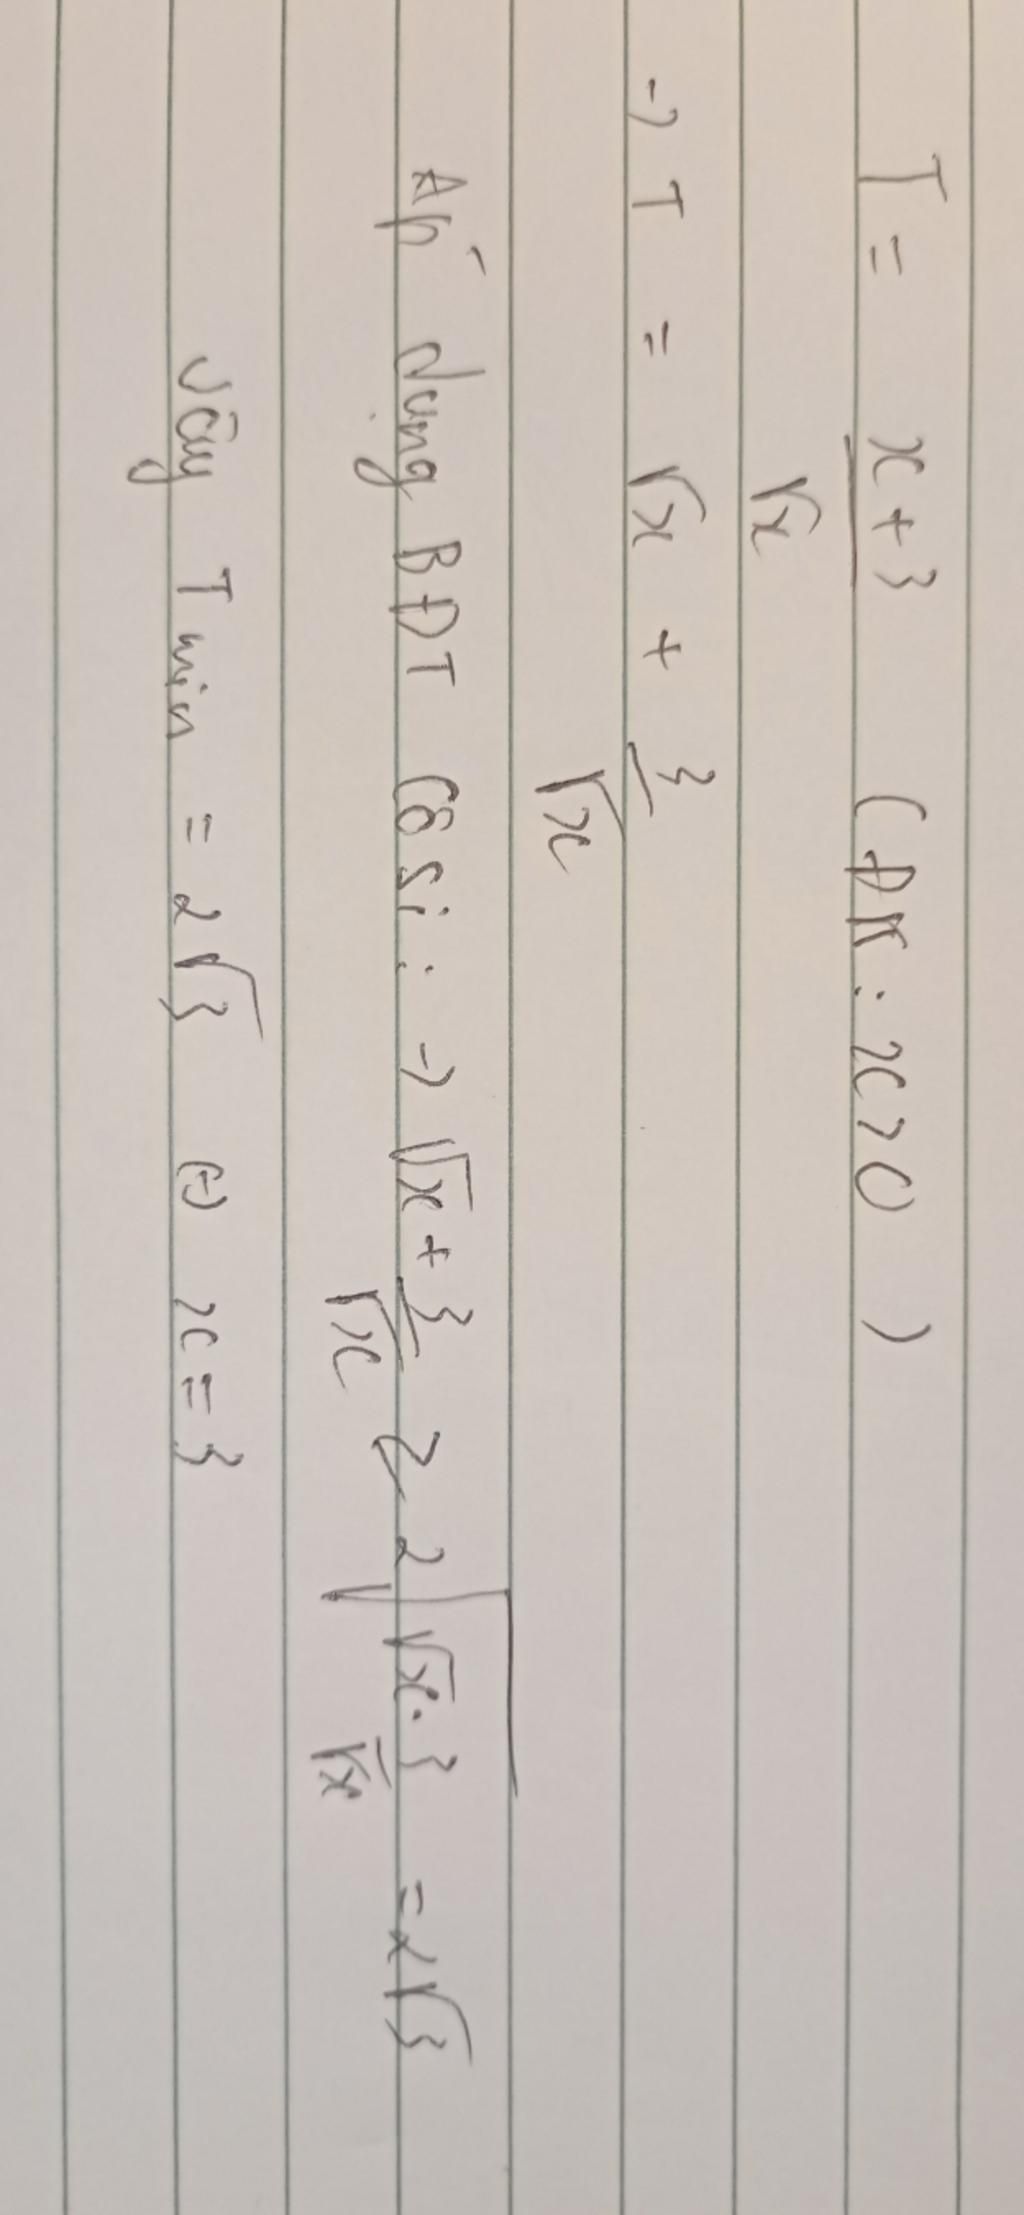 T = x+3/√x (ĐK: x>0)
→ T = √x + 3/√x
Áp dụng BĐT Côsi: → √x + 3/√x ≥ 2√(√x . 3/√x) = 2√3
Vậy T min = 2√3 (=) x=3